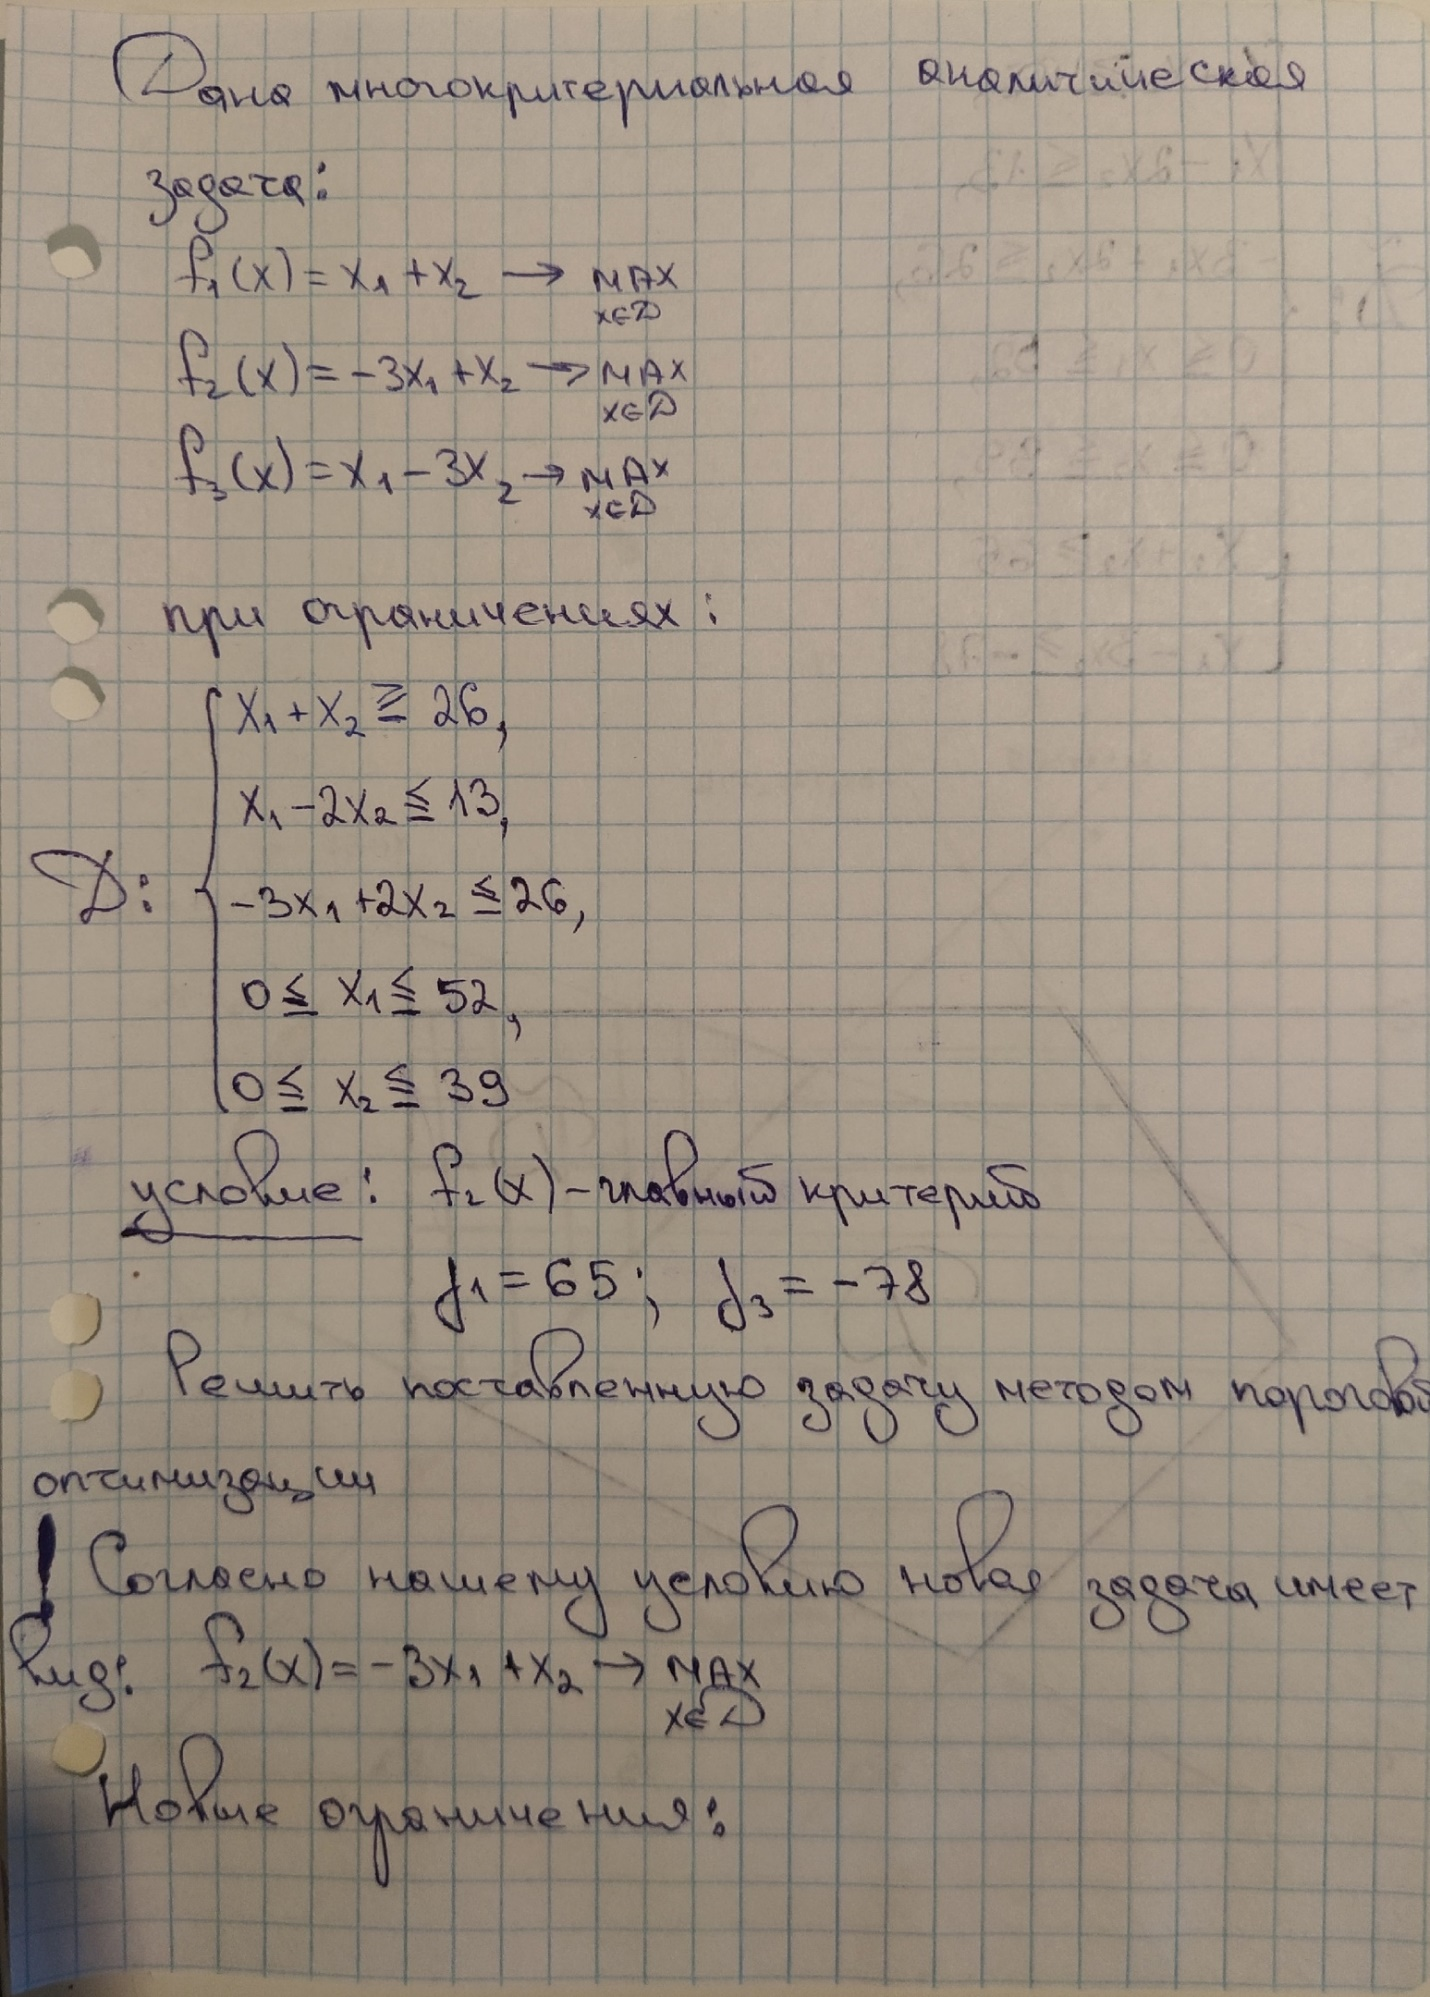 Дана многокритериальная аналитическая
задача:
f₁(x) = x₁ + x₂ → MAX
x∈D
f₂(x) = -3x₁ + x₂ → MAX
x∈D
f₃(x) = x₁ - 3x₂ → MAX
x∈D
при ограничениях:
x₁ + x₂ ≧ 26,
x₁ - 2x₂ ≦ 13,
D: { -3x₁ + 2x₂ ≦ 26,
0 ≦ x₁ ≦ 52,
0 ≦ x₂ ≦ 39
условие: f₂(x) - главный критерий
f₁ = 65; f₃ = -78
Решить поставленную задачу методом пороговой
оптимизации
! Согласно нашему условию новая задача имеет
вид: f₂(x) = -3x₁ + x₂ → MAX
x∈D
Новые ограничения: